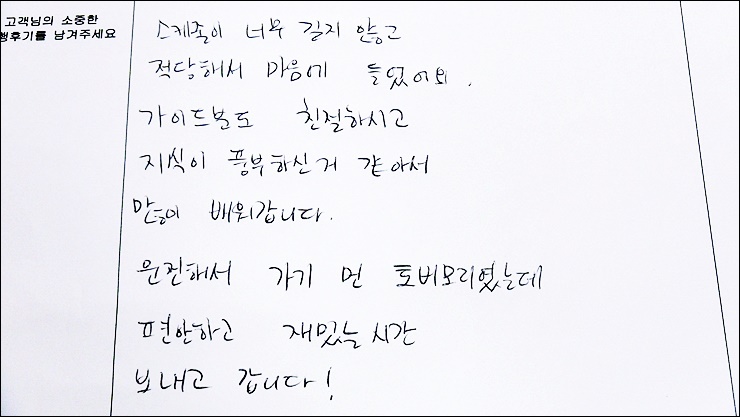 고객님의 소중한
행후기를 남겨주세요
스케줄이 너무 길지 않고
적당해서 마음에 들었어요.
가이드분도 친절하시고
지식이 풍부하신거 같아서
많이 배워갑니다.
운전해서 가기 먼 토버모리였는데
편안하고 재밌는 시간
보내고 갑니다!